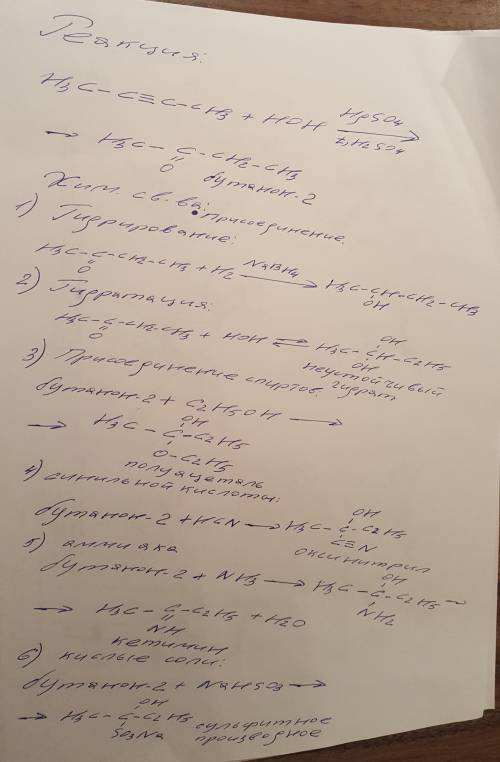 Реакция:
H₃C – C≡C – CH₃ + HOH HgSO₄ t, H₂SO₄ →
→ H₃C – C – CH₂ – CH₃
O бутанон-2
Хим. св-ва: • присоединение.
1) Гидрирование:
H₃C – C – CH₂ – CH₃ + H₂ NaBH₄ → H₃C – CH – CH₂ – CH₃
O OH
2) Гидратация:
OH
H₃C – C – CH₂ – CH₃ + HOH ⇌ H₃C – CH – C₂H₅
O OH
неустойчивый гидрат
3) Присоединение спиртов:
бутанон-2 + C₂H₅OH →
OH
→ H₃C – C – C₂H₅
O – C₂H₅
полуацеталь
4) синильной кислоты:
OH
бутанон-2 + HCN → H₃C – C – C₂H₅
C≡N
оксинитрил
5) аммиака
OH
бутанон-2 + NH₃ → H₃C – C – C₂H₅ →
NH₂
→ H₃C – C – C₂H₅ + H₂O
NH
кетимин
6) кислые соли:
бутанон-2 + NaHSO₃ →
OH
→ H₃C – C – C₂H₅ сульфитное
SO₃Na производное